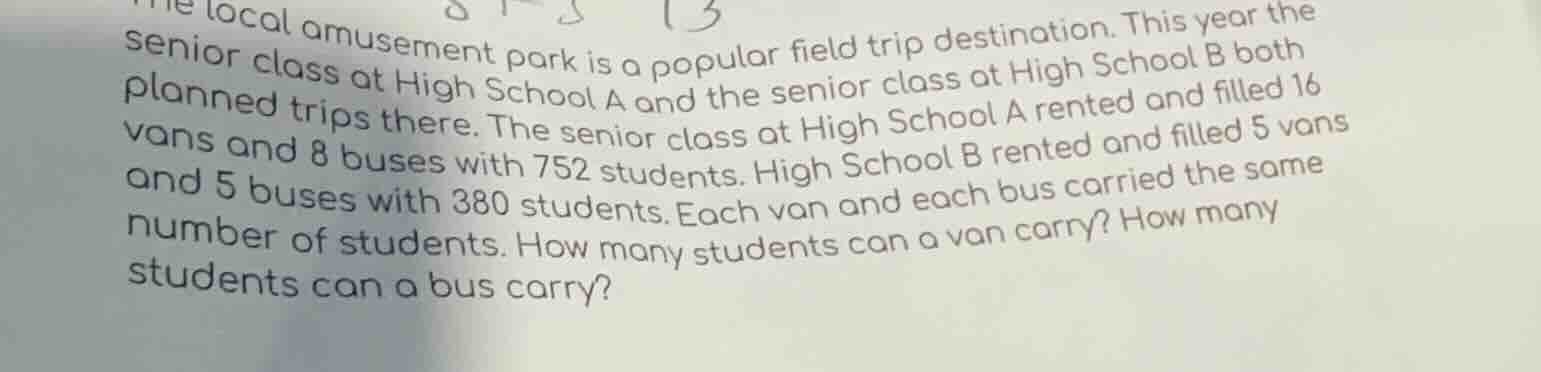 The local amusement park is a popular field trip destination. This year the
senior class at High School A and the senior class at High School B both
planned trips there. The senior class at High School A rented and filled 16
vans and 8 buses with 752 students. High School B rented and filled 5 vans
and 5 buses with 380 students. Each van and each bus carried the same
number of students. How many students can a van carry? How many
students can a bus carry?